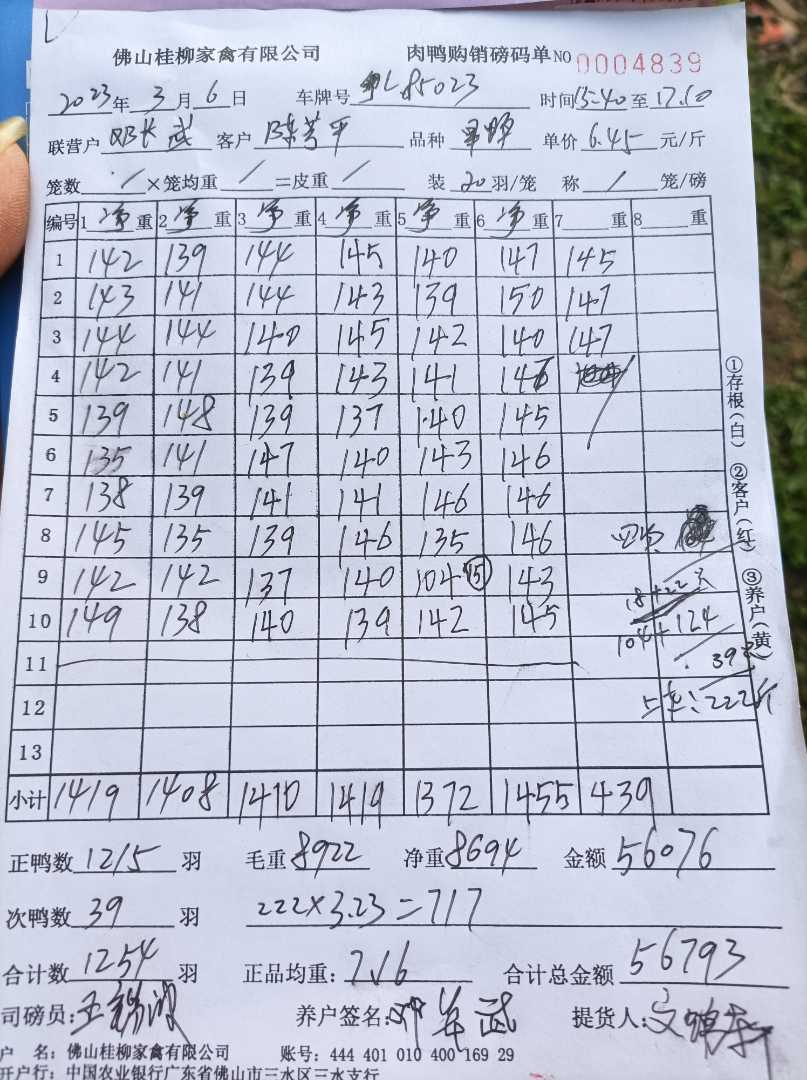 佛山桂柳家禽有限公司 肉鸭购销磅码单 NO 0004839
2023年3月6日 车牌号 L85023 时间 15-40 至 17.10
联营户 邓长武 客户 陈芳平 品种 单价 6.45 元/斤
笼数 / ×笼均重 / =皮重 / 装 20 羽/笼 称 / 笼/磅
编号 1 净 重 2 净 重 3 净 重 4 净 重 5 净 重 6 净 重 7 重 8 重
1 142 139 144 145 140 147 145
2 143 141 144 143 139 150 147
3 144 144 140 145 142 140 147
4 142 141 139 143 141 146
5 139 148 139 137 140 145
6 135 141 147 140 143 146
7 138 139 141 141 146 146
8 145 135 139 146 135 146
9 142 142 137 140 104 15 143
10 149 138 140 139 142 145
18+22
104+124
39
11
12 222斤
13
小计 1419 1408 1410 1419 1372 1455 439
①存根(白) ②客户(红) ③养户(黄)
正鸭数 1215 羽 毛重 8922 净重 8694 金额 56076
次鸭数 39 羽 222×3.23=717
合计数 1254 羽 正品均重: 7.16 合计总金额 56793
司磅员: 养户签名: 提货人:
户 名: 佛山桂柳家禽有限公司 账号: 444 401 010 400 169 29
开户行: 中国农业银行广东省佛山市三水区三水支行